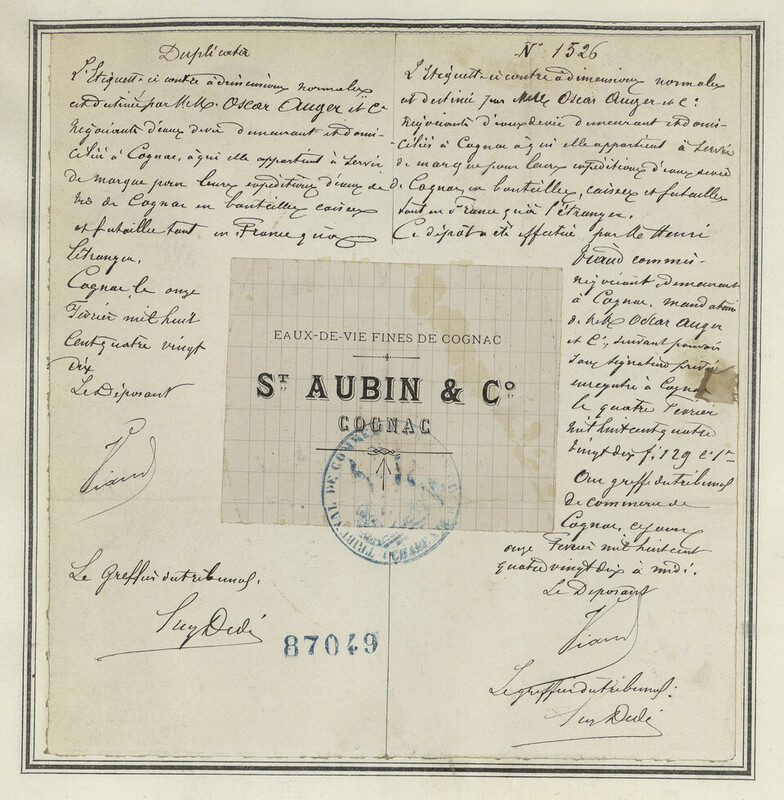 Duplicata
L'Etiquette ci contre à dimensions normales
est destinée par M.M. Oscar Auger et Cie
négociants d'eaux de vie demeurant et domi-
ciliés à Cognac, à qui elle appartient à servir
de marque pour leurs expéditions d'eaux de
vie de Cognac en bouteilles caisses
et futailles tant en France qu'à
l'étranger.
Cognac, le onze
Février mil huit
cent quatre vingt
dix
Le Déposant
Viaud
Le Greffier du tribunal.
87049
N° 1526
L'Etiquette ci contre à dimensions normales
est destinée par M.M. Oscar Auger et Cie
négociants d'eaux de vie demeurant et domi-
ciliés à Cognac à qui elle appartient à servir
de marque pour leurs expéditions d'eaux de vie
de Cognac, en bouteilles, caisses et futailles
tant en France qu'à l'étranger.
Ce dépôt a été effectué par Me Henri
Viaud commis-
négociant demeurant
à Cognac, mandataire
de M.M. Oscar Auger
et Cie, suivant pouvoir
sous signature privée
enregistré à Cognac
le quatre Février
mil huit cent quatre
vingt dix f. 129 c. 1re
Au greffe du tribunal
de commerce de
Cognac, ce jour
onze Février mil huit cent
quatre vingt dix à midi.
Le Déposant
Viaud
Le greffier du tribunal:
EAUX-DE-VIE FINES DE COGNAC
ST AUBIN & Co
COGNAC
TRIBUNAL DE COMMERCE